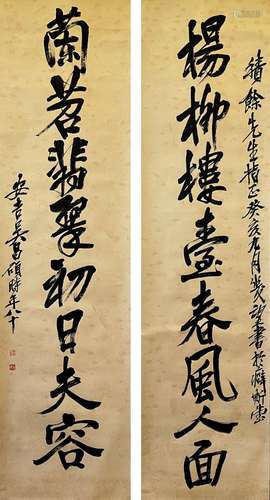 績餘先生指正癸亥九月幾望書於癖斯堂
楊柳樓臺春風人面
蘭苕翡翠初日夫容
安吉吳昌碩時年八十